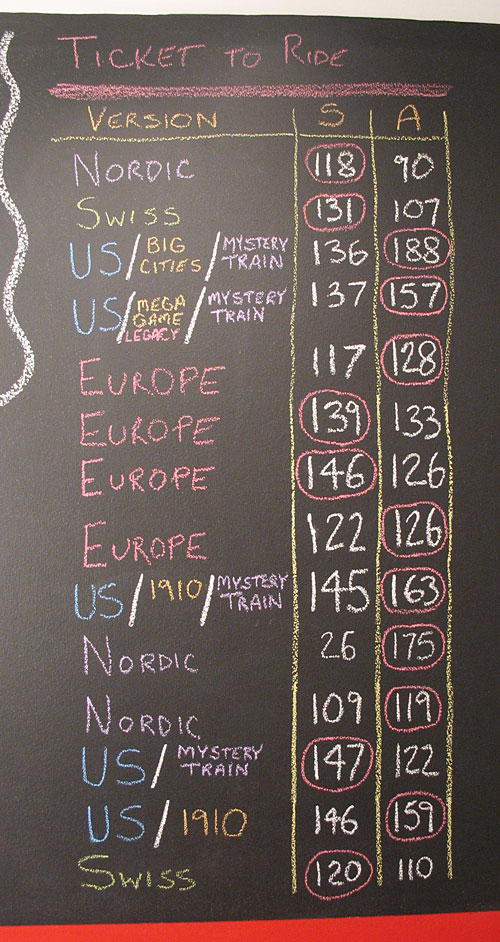 TICKET TO RIDE
VERSION S A
NORDIC 118 90
SWISS 131 107
US/BIG CITIES/MYSTERY TRAIN 136 188
US/MEGA GAME LEGACY/MYSTERY TRAIN 137 157
EUROPE 117 128
EUROPE 139 133
EUROPE 146 126
EUROPE 122 126
US/1910/MYSTERY TRAIN 145 163
NORDIC 26 175
NORDIC 109 119
US/MYSTERY TRAIN 147 122
US/1910 146 159
SWISS 120 110